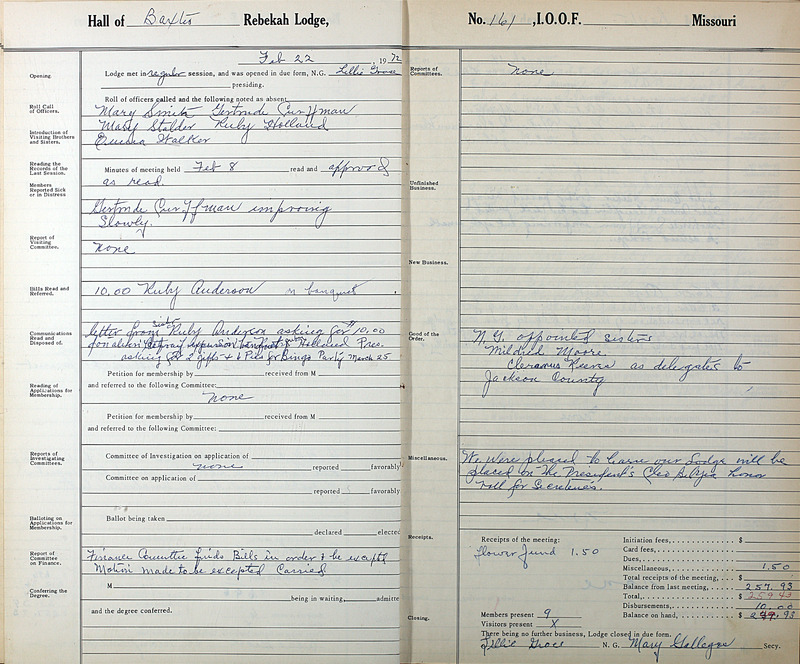 Hall of Baxter Rebekah Lodge,
Feb 22 19 72
Opening
Lodge met in regular session, and was opened in due form, N.G. Lillie
presiding.
Roll Call
of Officers.
Roll of officers called and the following noted as absent
Mary Smith Gertrude Curffman
Mary Stalder Ruby Holland
Introduction of
Visiting Brothers
and Sisters.
Emma Walker
Reading the
Records of the
Last Session.
Minutes of meeting held Feb 8 read and approved
as read.
Members
Reported Sick
or in Distress
Gertrude Curffman improving
Slowly.
Report of
Visiting
Committee.
None
Bills Read and
Referred.
10.00 Ruby Anderson on banquet
Communications
Read and
Disposed of.
letter from Sister Ruby Anderson asking for $10.00
Pres.
asking for 2 gifts & 6 Pies for Bingo Party March 25
Petition for membership by received from M
and referred to the following Committee:
Reading of
Applications for
Membership.
None
Petition for membership by received from M
and referred to the following Committee:
Reports of
Investigating
Committees.
Committee of Investigation on application of
none reported favorably
Committee on application of
reported favorably
Balloting on
Applications for
Membership.
Ballot being taken
declared elected
Report of
Committee
on Finance.
Finance Committie finds Bills in order & be excepted
Motion made to be excepted Carried
M
Conferring the
Degree.
being in waiting, admitte
and the degree conferred.
No. 161, I.O.O.F. Missouri
Reports of
Committees.
None
Unfinished
Business.
New Business.
Good of the
Order.
N.G. appointed sisters
Mildred Moore
Reeves as delegates to
Jackson County
Miscellaneous.
We were pleased to learn our Lodge will be
placed on The President's honor
roll for Secretaries.
Receipts.
Receipts of the meeting:
Flower fund 1.50
Initiation fees, $
Card fees,
Dues,
Miscellaneous, 1.50
Total receipts of the meeting, $
Balance from last meeting, 257.93
Total, $ 259 43
Disbursements, 10.00
Balance on hand, $ 249.93
Closing.
Members present 9
Visitors present X
There being no further business, Lodge closed in due form.
Lillie N. G. Mary Secy.